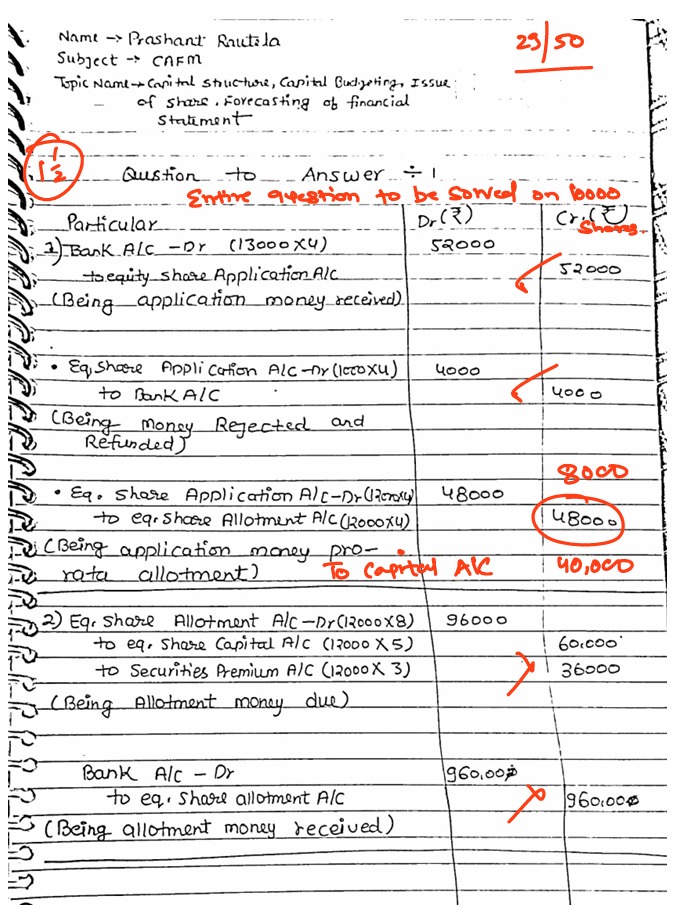 Name → Prashant Rautela
29/50
Subject → CAFM
Topic Name → Capital structure, Capital Budgeting, Issue
of share, Forecasting of financial
statement
1 1/2
Qustion to Answer ÷ 1
Entire question to be solved on 10000
Shares.
Particular Dr (₹) Cr. (₹)
1) Bank A/C - Dr (13000 X 4) 52000
to equity share Application A/C 52000
(Being application money received)
• Eq. share Application A/C - Dr (1000 X 4) 4000
to Bank A/C 4000
(Being money Rejected and
Refunded)
8000
• Eq. share Application A/C - Dr (12000 x 4) 48000
to eq. share Allotment A/C (12000 x 4) 48000
(Being application money pro-
rata allotment) To Capital A/C 40,000
2) Eq. share Allotment A/C - Dr (12000 X 8) 96000
to eq. share Capital A/C (12000 X 5) 60,000
to Securities Premium A/C (12000 X 3) 36000
(Being Allotment money due)
Bank A/C - Dr 960,000
to eq. share allotment A/C 960,000
(Being allotment money received)